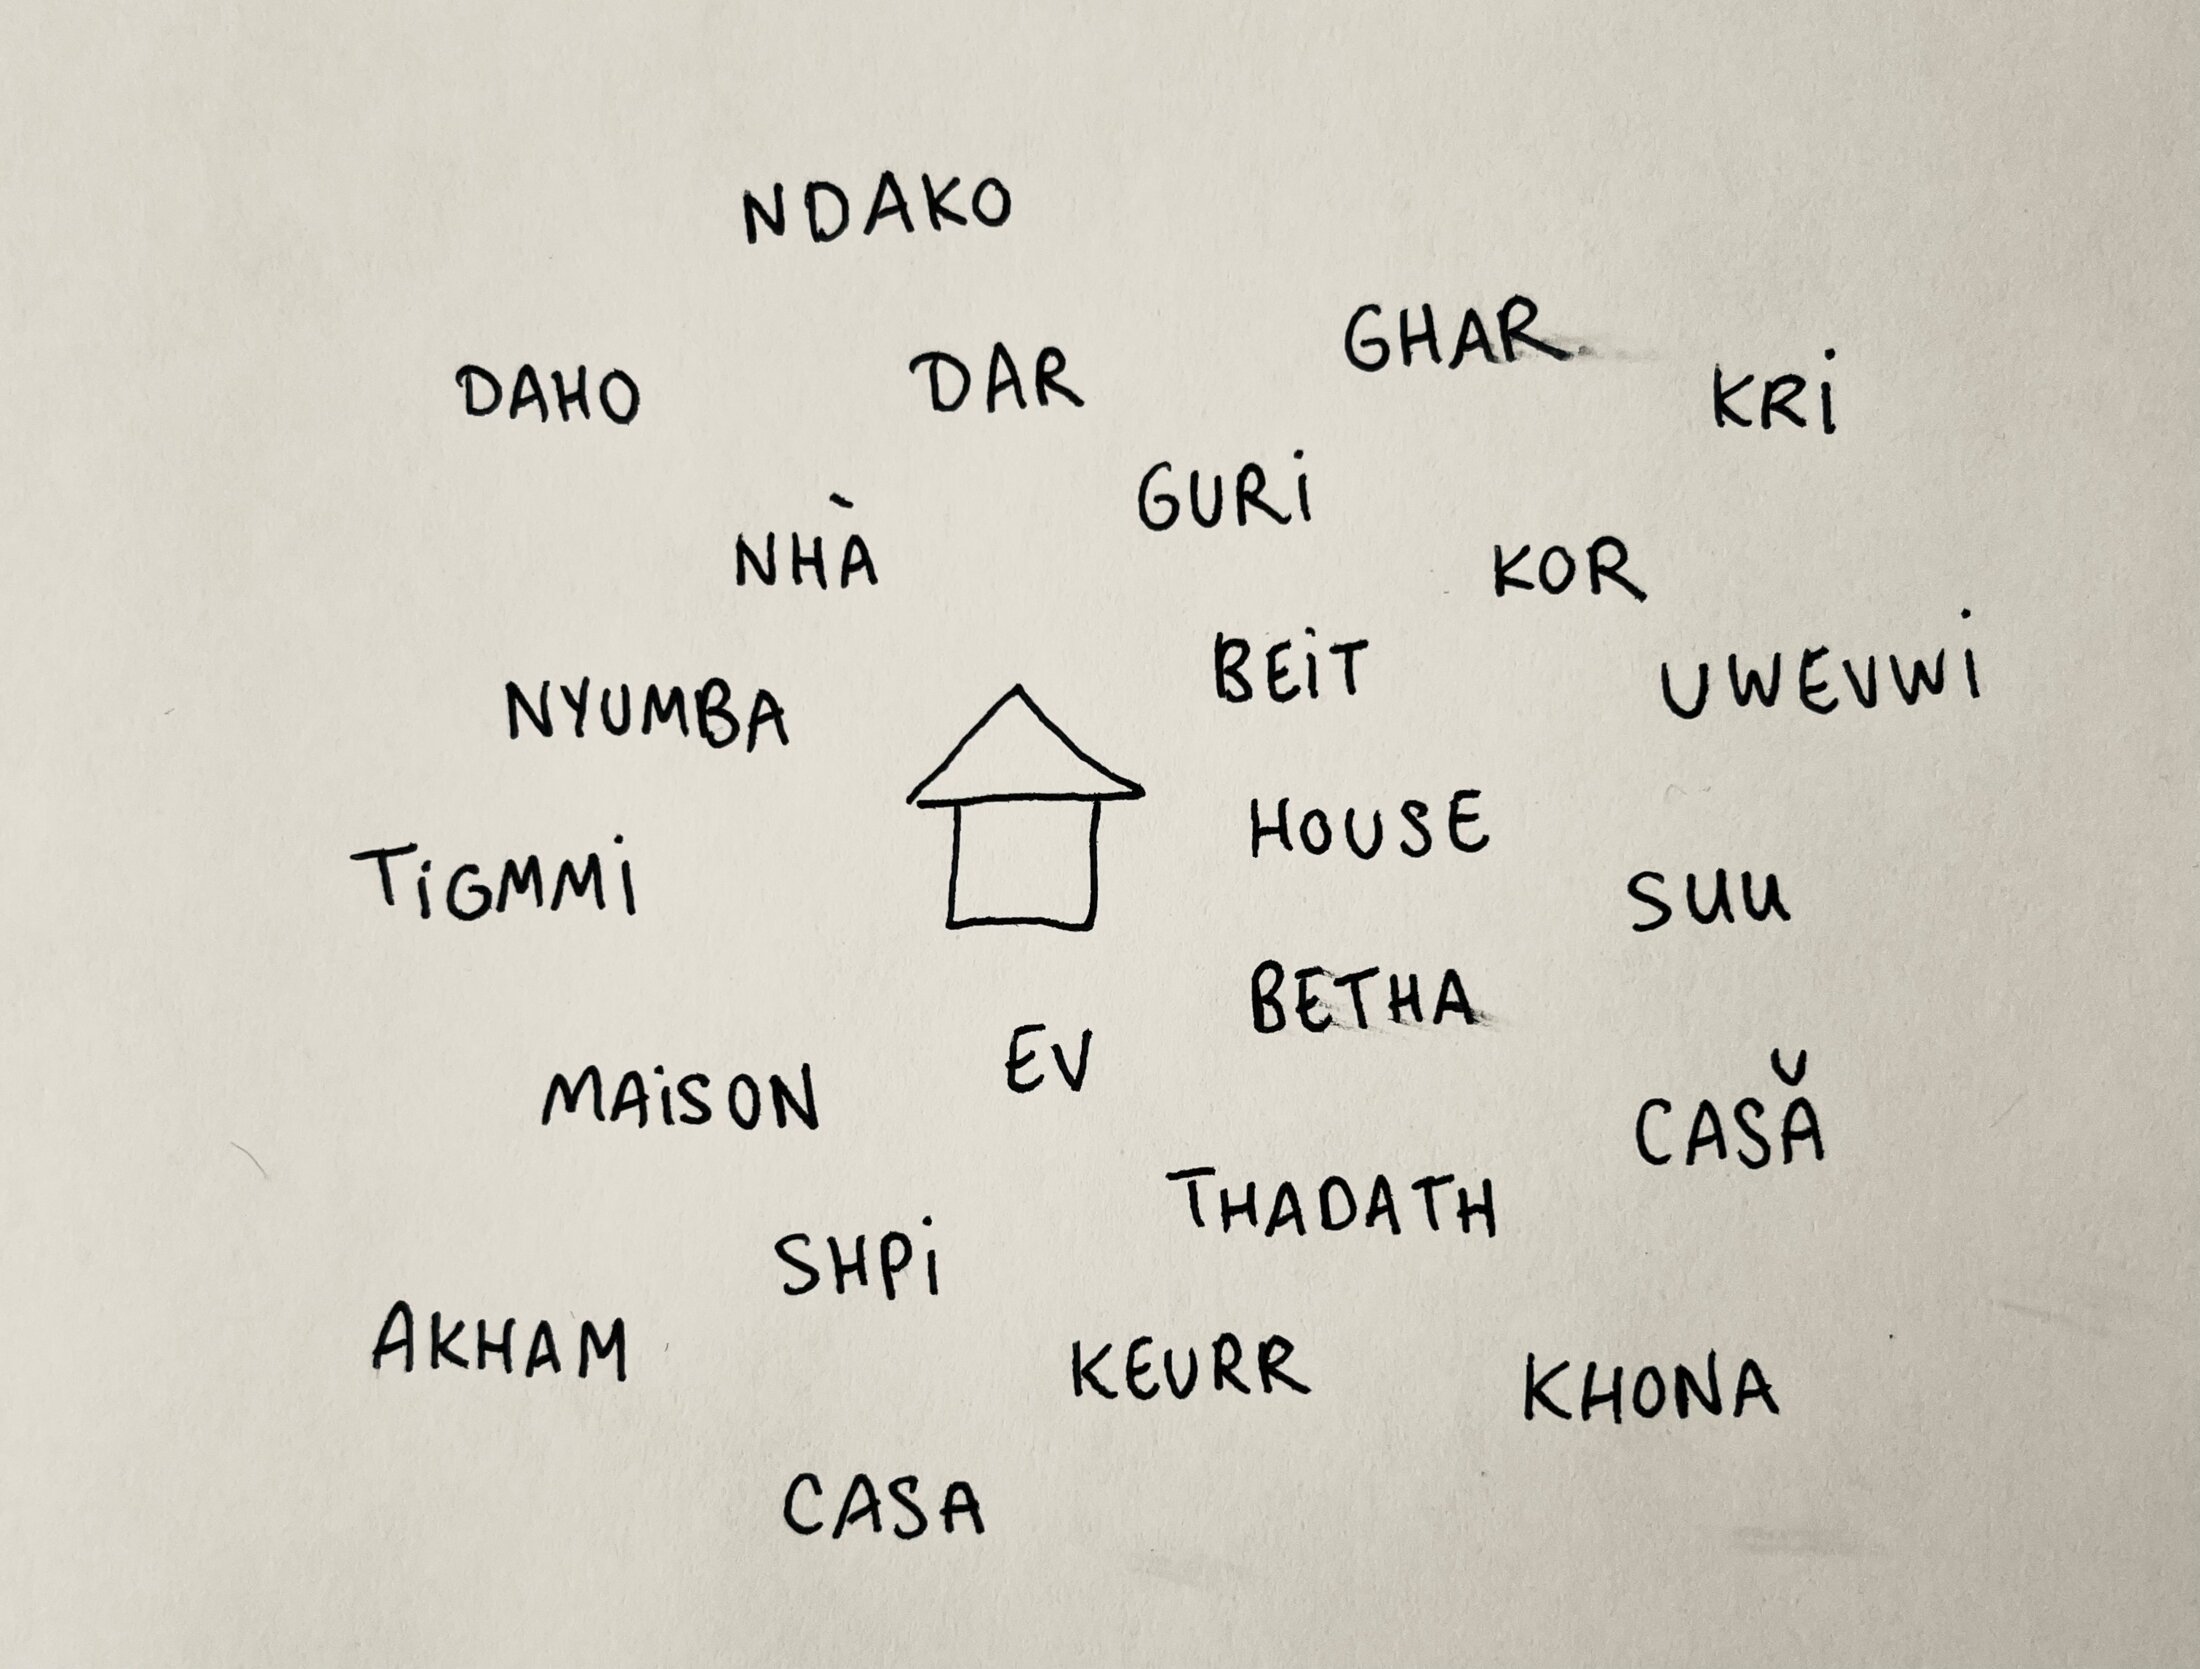 NDAKO
GHAR
DAHO
DAR
KRi
GURi
NHÀ
KOR
BEiT
UWEVWi
NYUMBA
HOUSE
TiGMMi
SUU
BETHA
EV
MAiSON
CASĂ
THADATH
SHPi
AKHAM
KEURR
KHONA
CASA